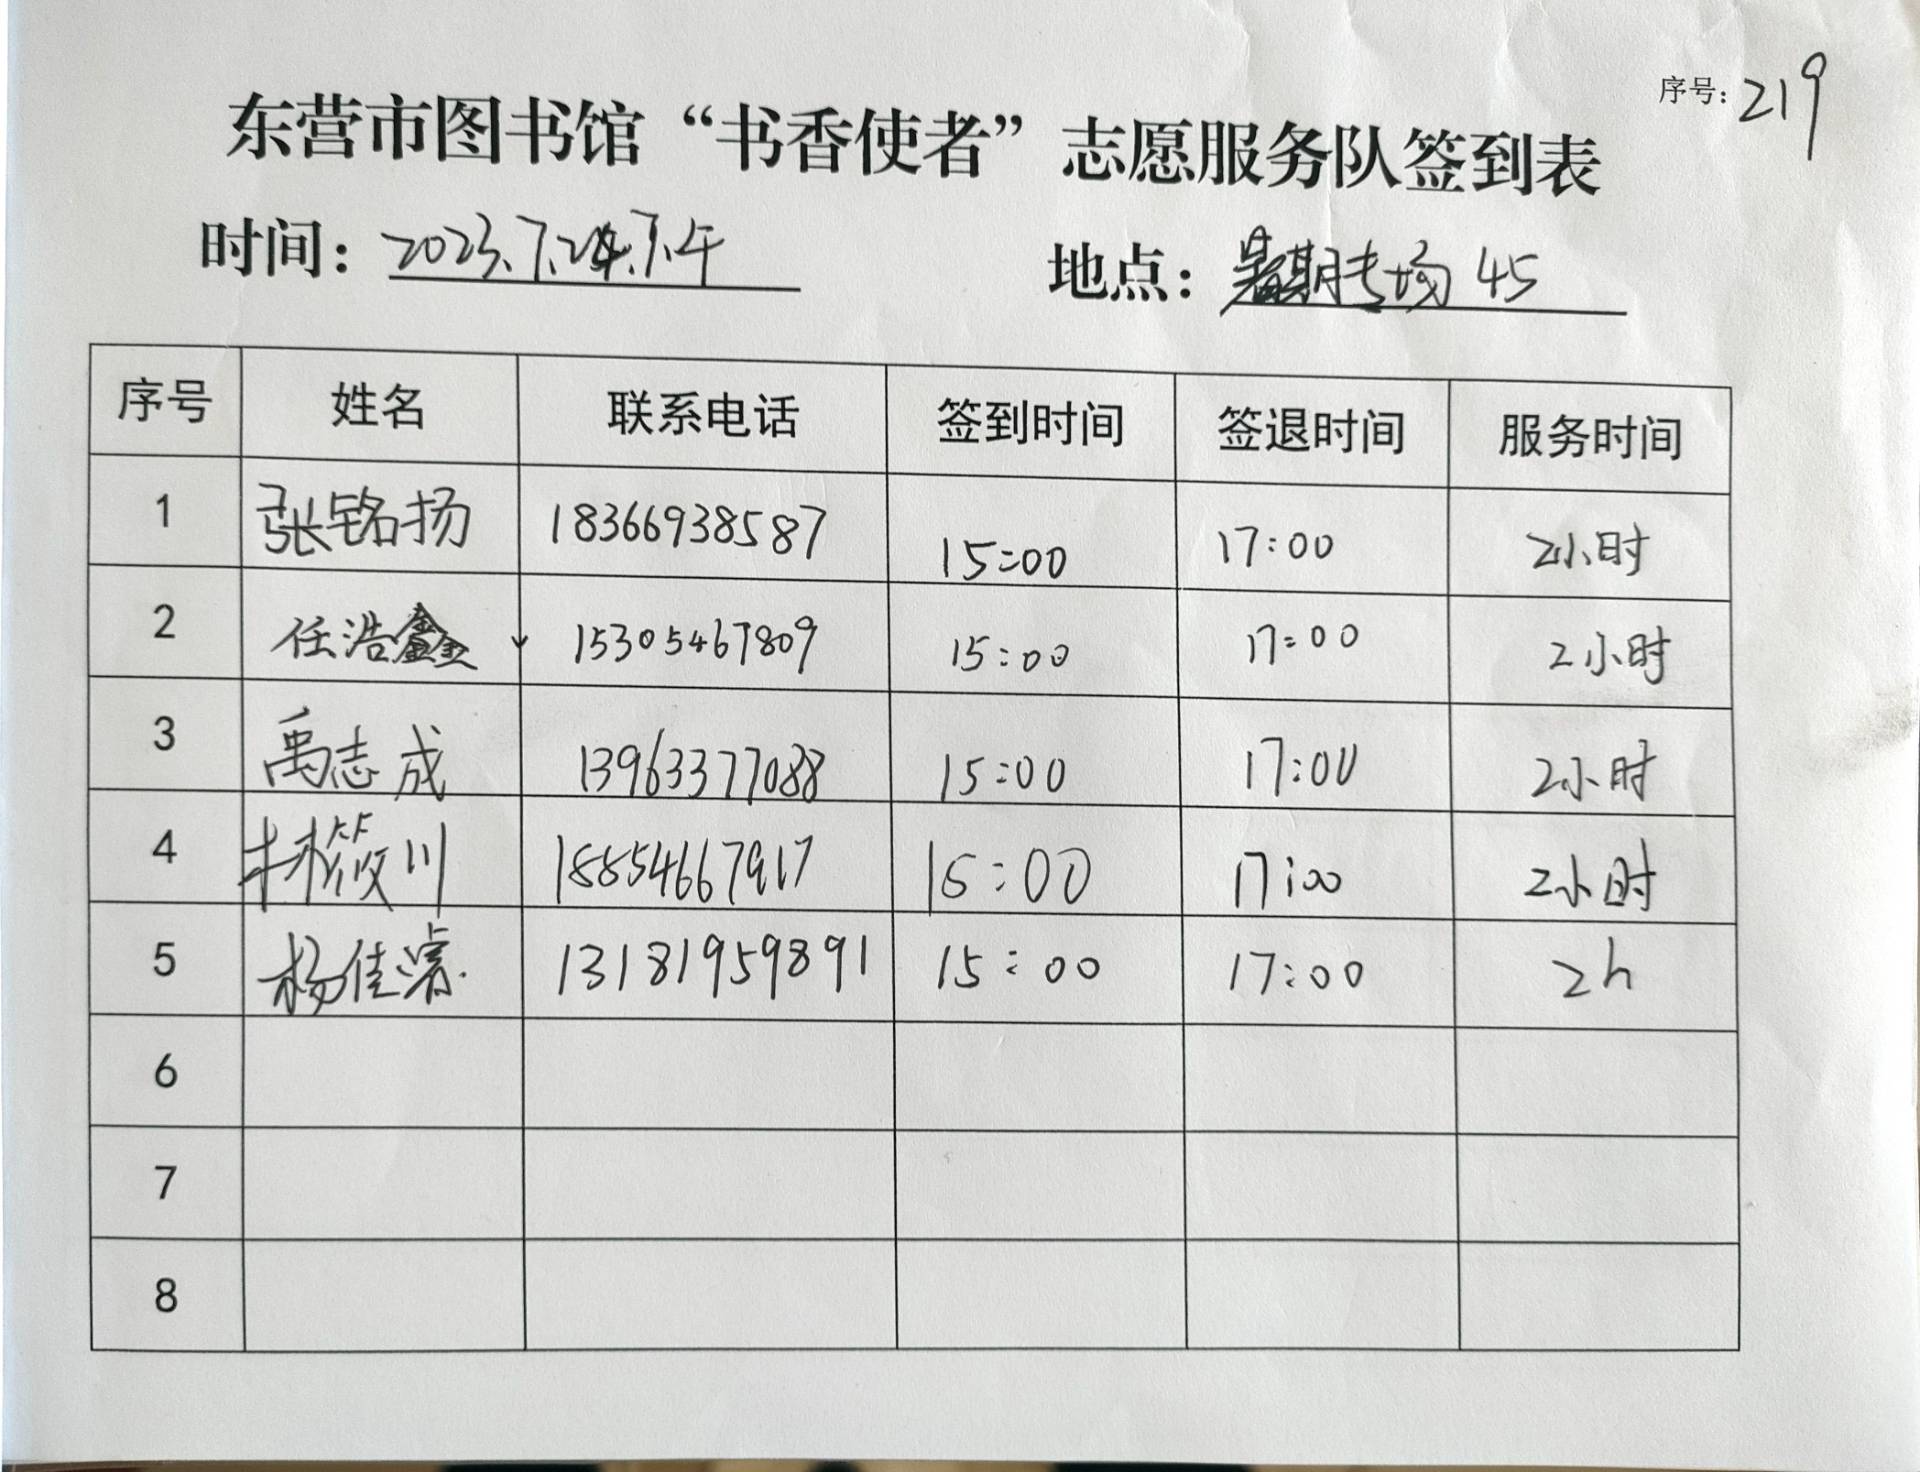 序号：219
东营市图书馆“书香使者”志愿服务队签到表
时间：2023.7.24.下午 地点：暑期专场 45
序号 姓名 联系电话 签到时间 签退时间 服务时间
1 张铭扬 18366938587 15:00 17:00 2小时
2 任浩鑫 15305467809 15:00 17:00 2小时
3 禹志成 13963377088 15:00 17:00 2小时
4 林筱川 18854667917 15:00 17:00 2小时
5 杨佳濬 13181959891 15:00 17:00 2h
6
7
8